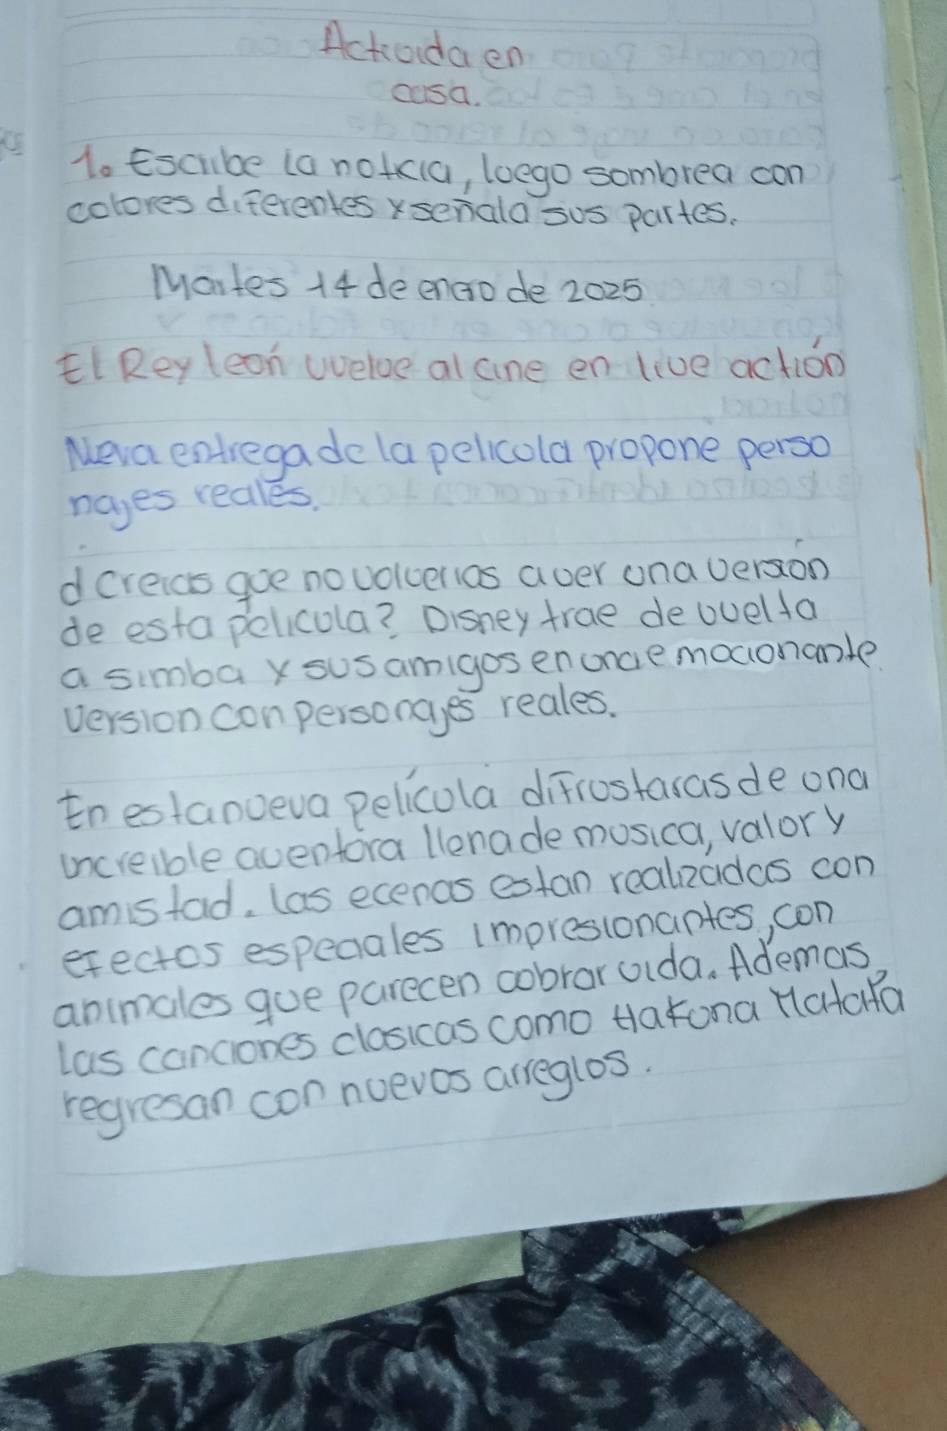 Activida en
casa.
1. Escribe la noticia, loego sombrea con
colores diferentes y señala sus partes.
Martes 14 de enero de 2025
El Rey león vuelve al cine en live actión
Neva entrega de la pelicola propone perso
najes reales.
d creias que no volverias a ver una versión
de esta pelicula? Disney trae de vuelta
a simba y sus amigos en una emocionante
version con personajes reales.
En esta nueva pelícola difrostaras de ona
increible aventora llena de mosica, valor y
amistad. las ecenas estan realizadas con
efectos especiales impresionantes, con
animales que parecen cobrar vida. Ademas,
las canciones clasicas como Hakona Matata
regresan con nuevos arreglos.